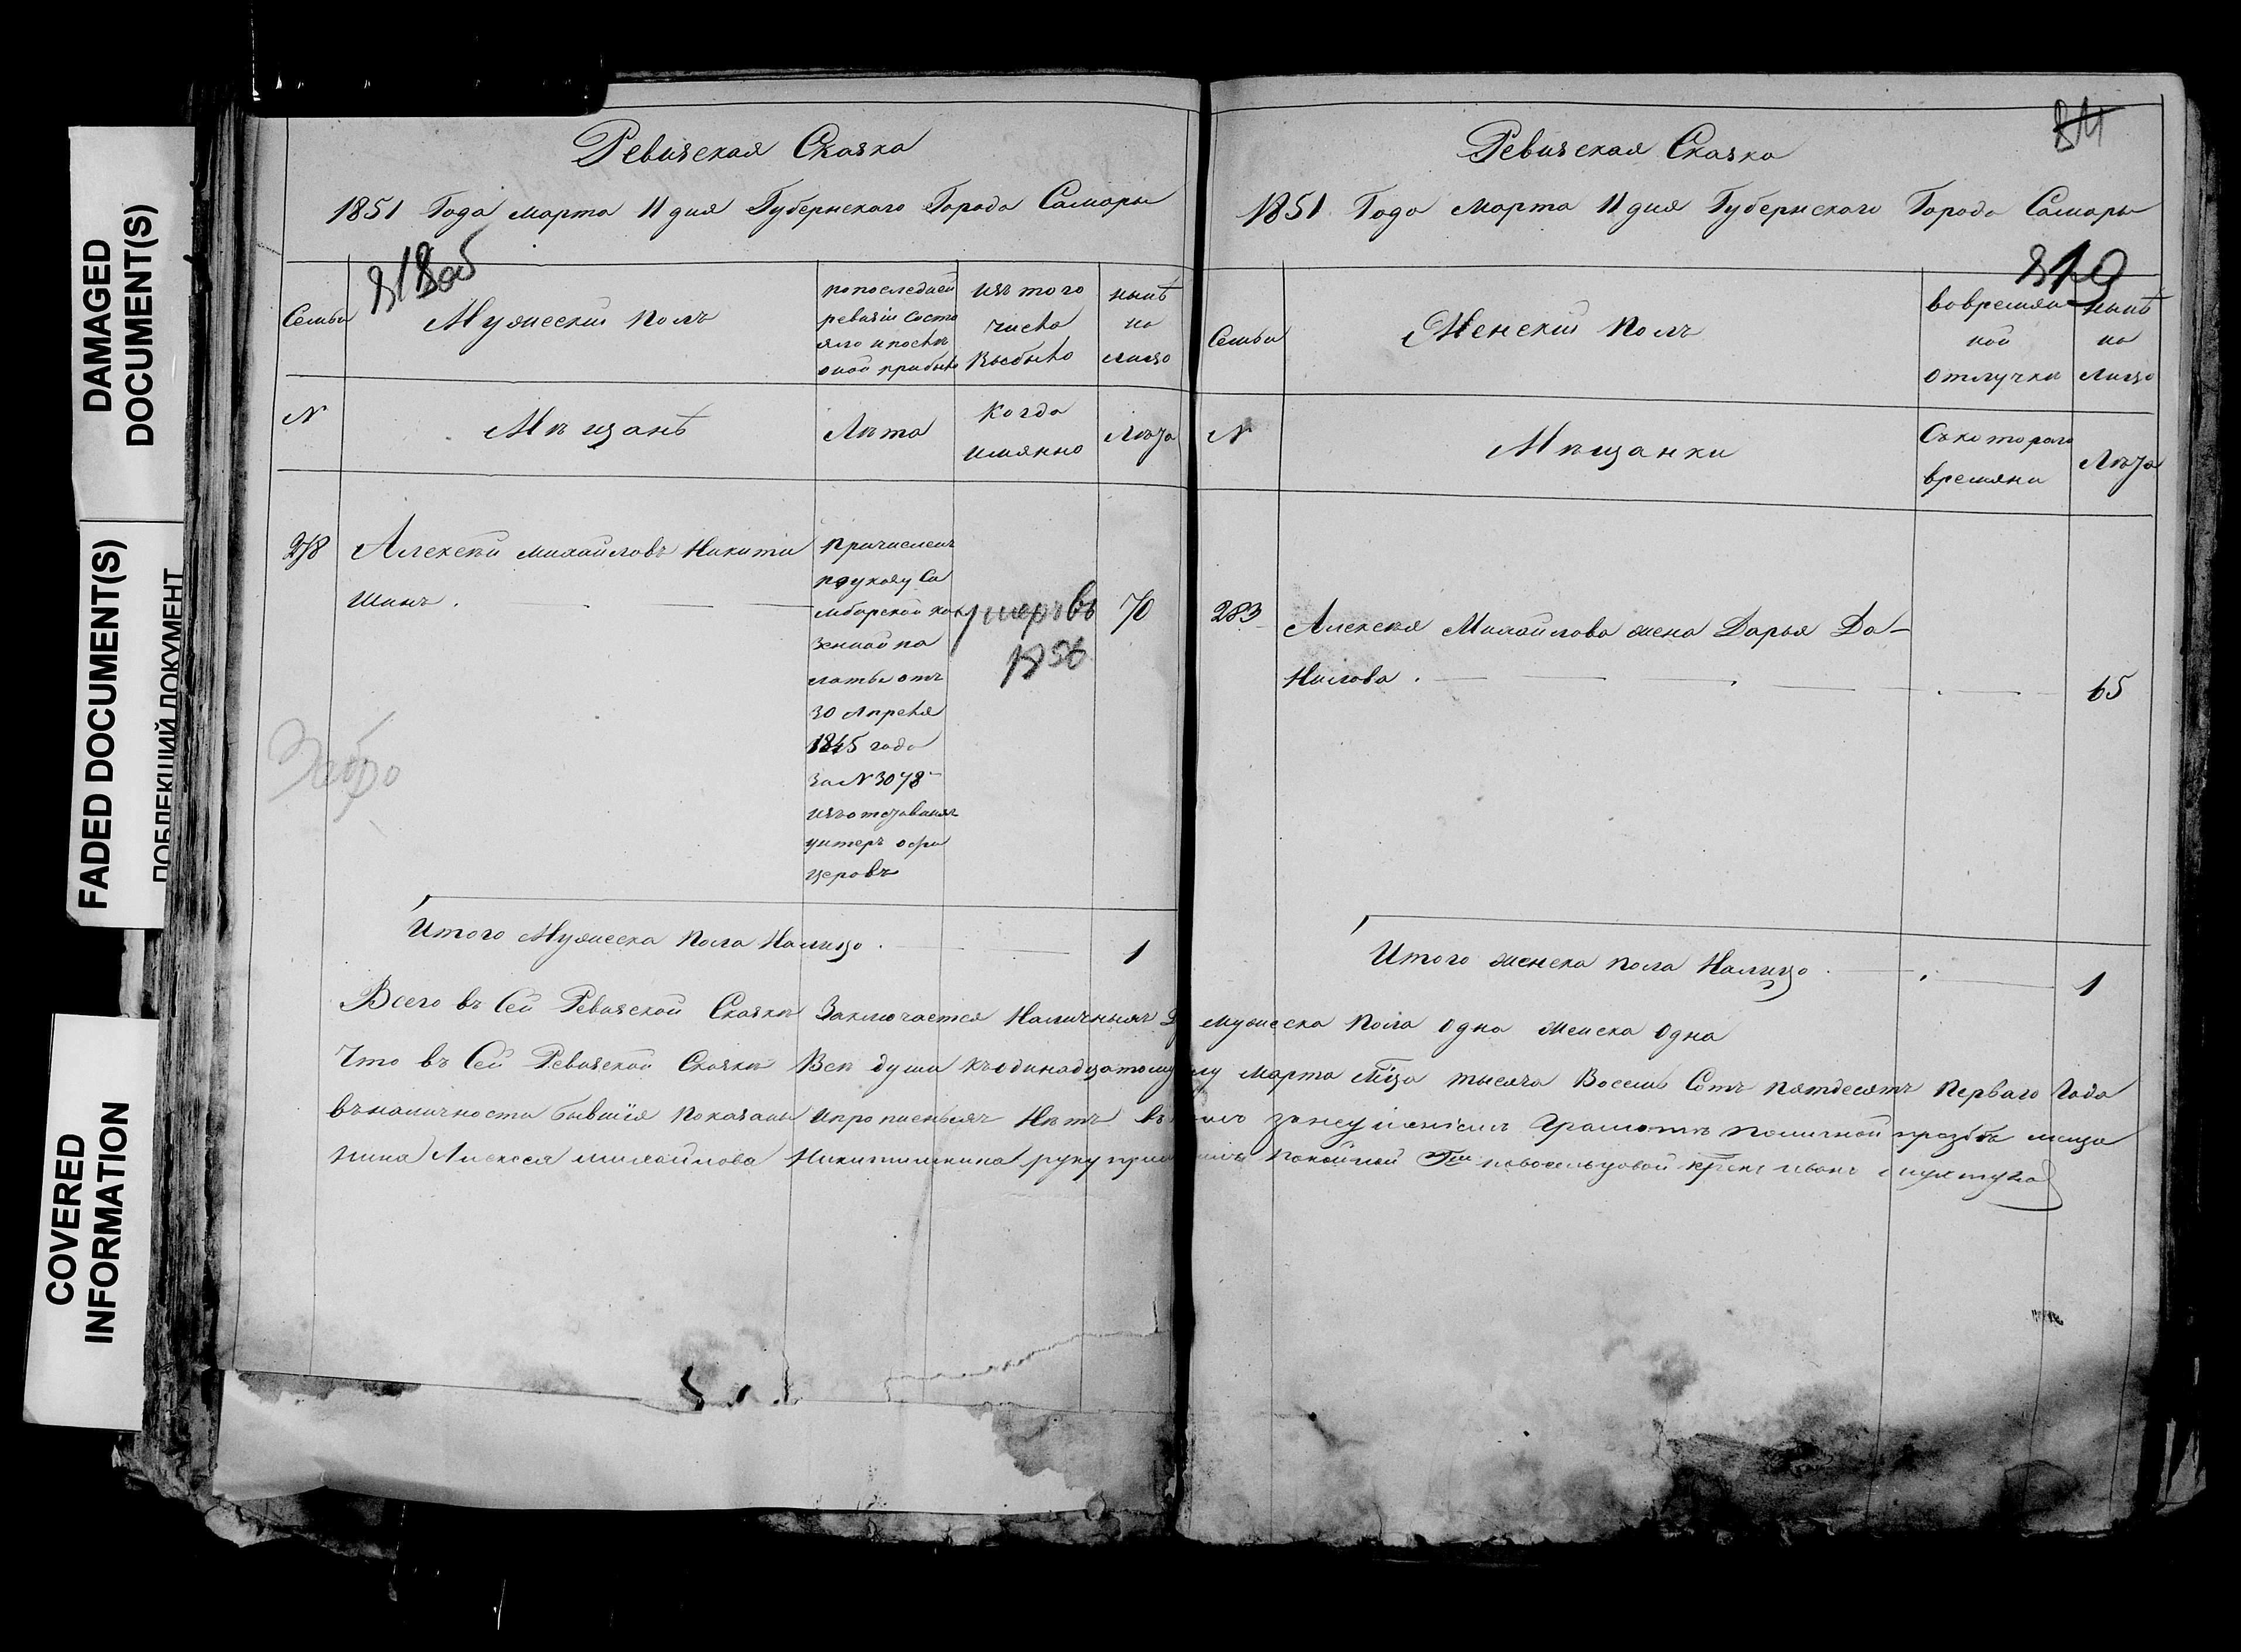 DAMAGED
DOCUMENT(S)
FADED DOCUMENT(S)
ПОБЛЕКШИЙ ДОКУМЕНТ
COVERED
INFORMATION
Ревизская Сказка
1851 Года марта 11 дня Губернскаго Города Самары
818 об
Семьи
Мужеский полъ
попоследней
ревизіи состо
яло ипослѣ
оной прибыло
изъ того
числа
Выбыло
нынѣ
на
лицо
N
Мѣщанѣ
Лѣта
Когда
имянно
Лѣта
278
Алексѣй михайловъ Никити
шинъ
Причисленъ
поуказу Си
мбирской каз
зенной па
латы отъ
30 Апреля
1845 года
за N 3078
изъ
унтеръ офи
церовъ
умеръ въ
1856
70
Забро
Итого Мужеска пола Налицо
1
Ревизская Сказка
1851 Года марта 11 дня Губернскаго Города Самары
819
Семьи
Женский полъ
вовремян
ной
отлучки
нынѣ
на
Лицо
N
Мѣщанки
Съкотораго
времяни
Лѣта
283
Алексѣя Михайлова жена Дарья Да-
нилова
65
Итого женска пола Налицо
1
Всего въ Сей Ревизской Сказкѣ Заключается Наличныхъ мужеска пола одна женска одна
Что въ Сей Ревизской Сказкѣ Всѣ души къодинадцатому марта мца тысяча Восемь Сотъ пятдесятъ Перваго Года
въналичности бывшія показаны ипрописныхъ Нѣтъ въ грамотѣ поличной прозбѣ меща
нина Алексея михайлова Никитишкина руку иванъ